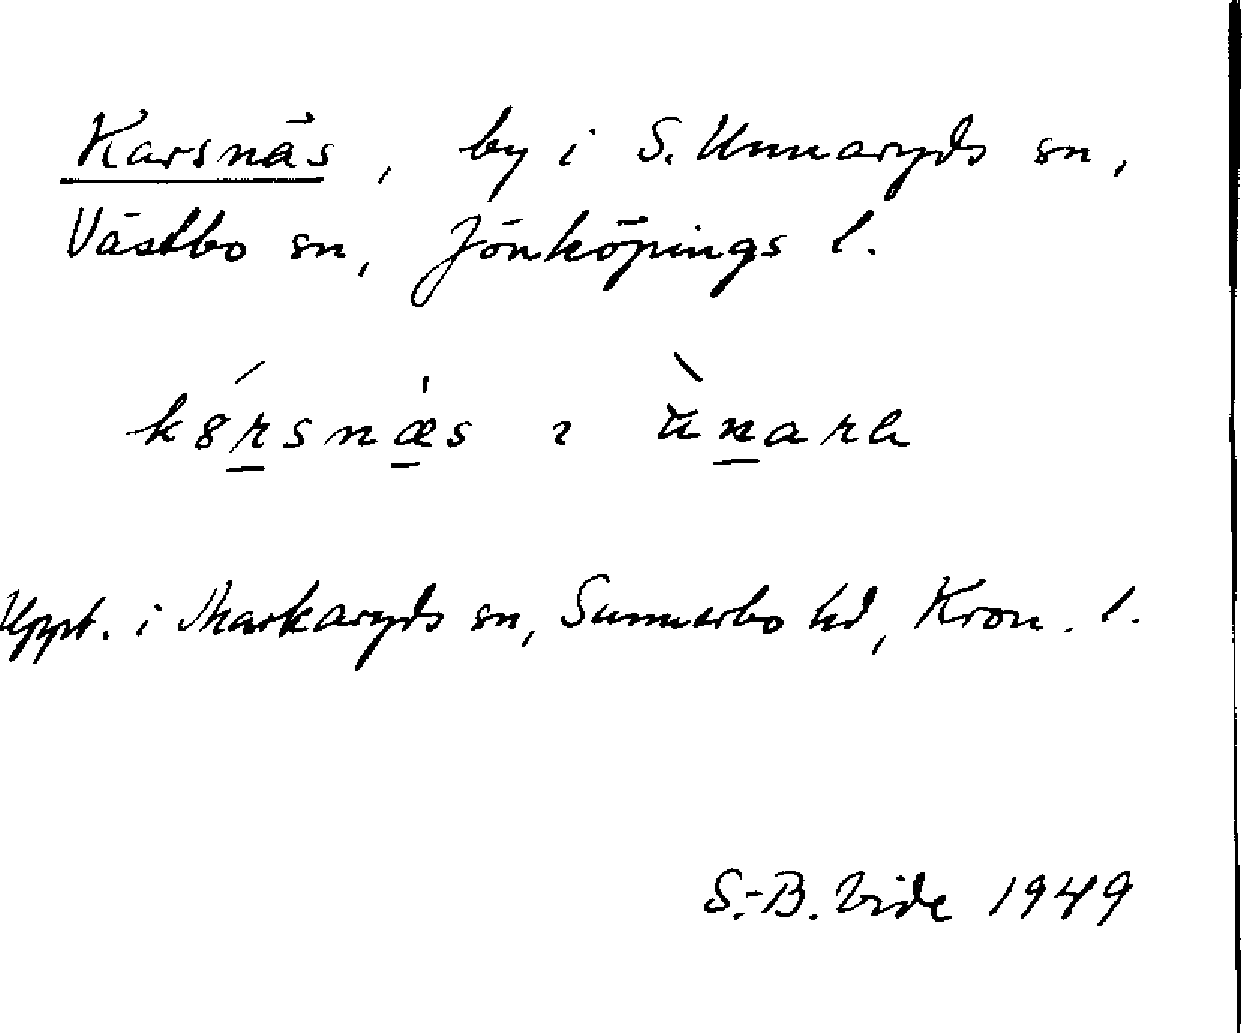 Karsnäs, by i S. Unnaryds sn,
Västbo sn, Jönköpings l.
kȣ́rsnæ̍s ı ùnara
Uppt. i Markaryds sn, Sunnerbo hd, Kron. l.
S.-B. Vide 1949